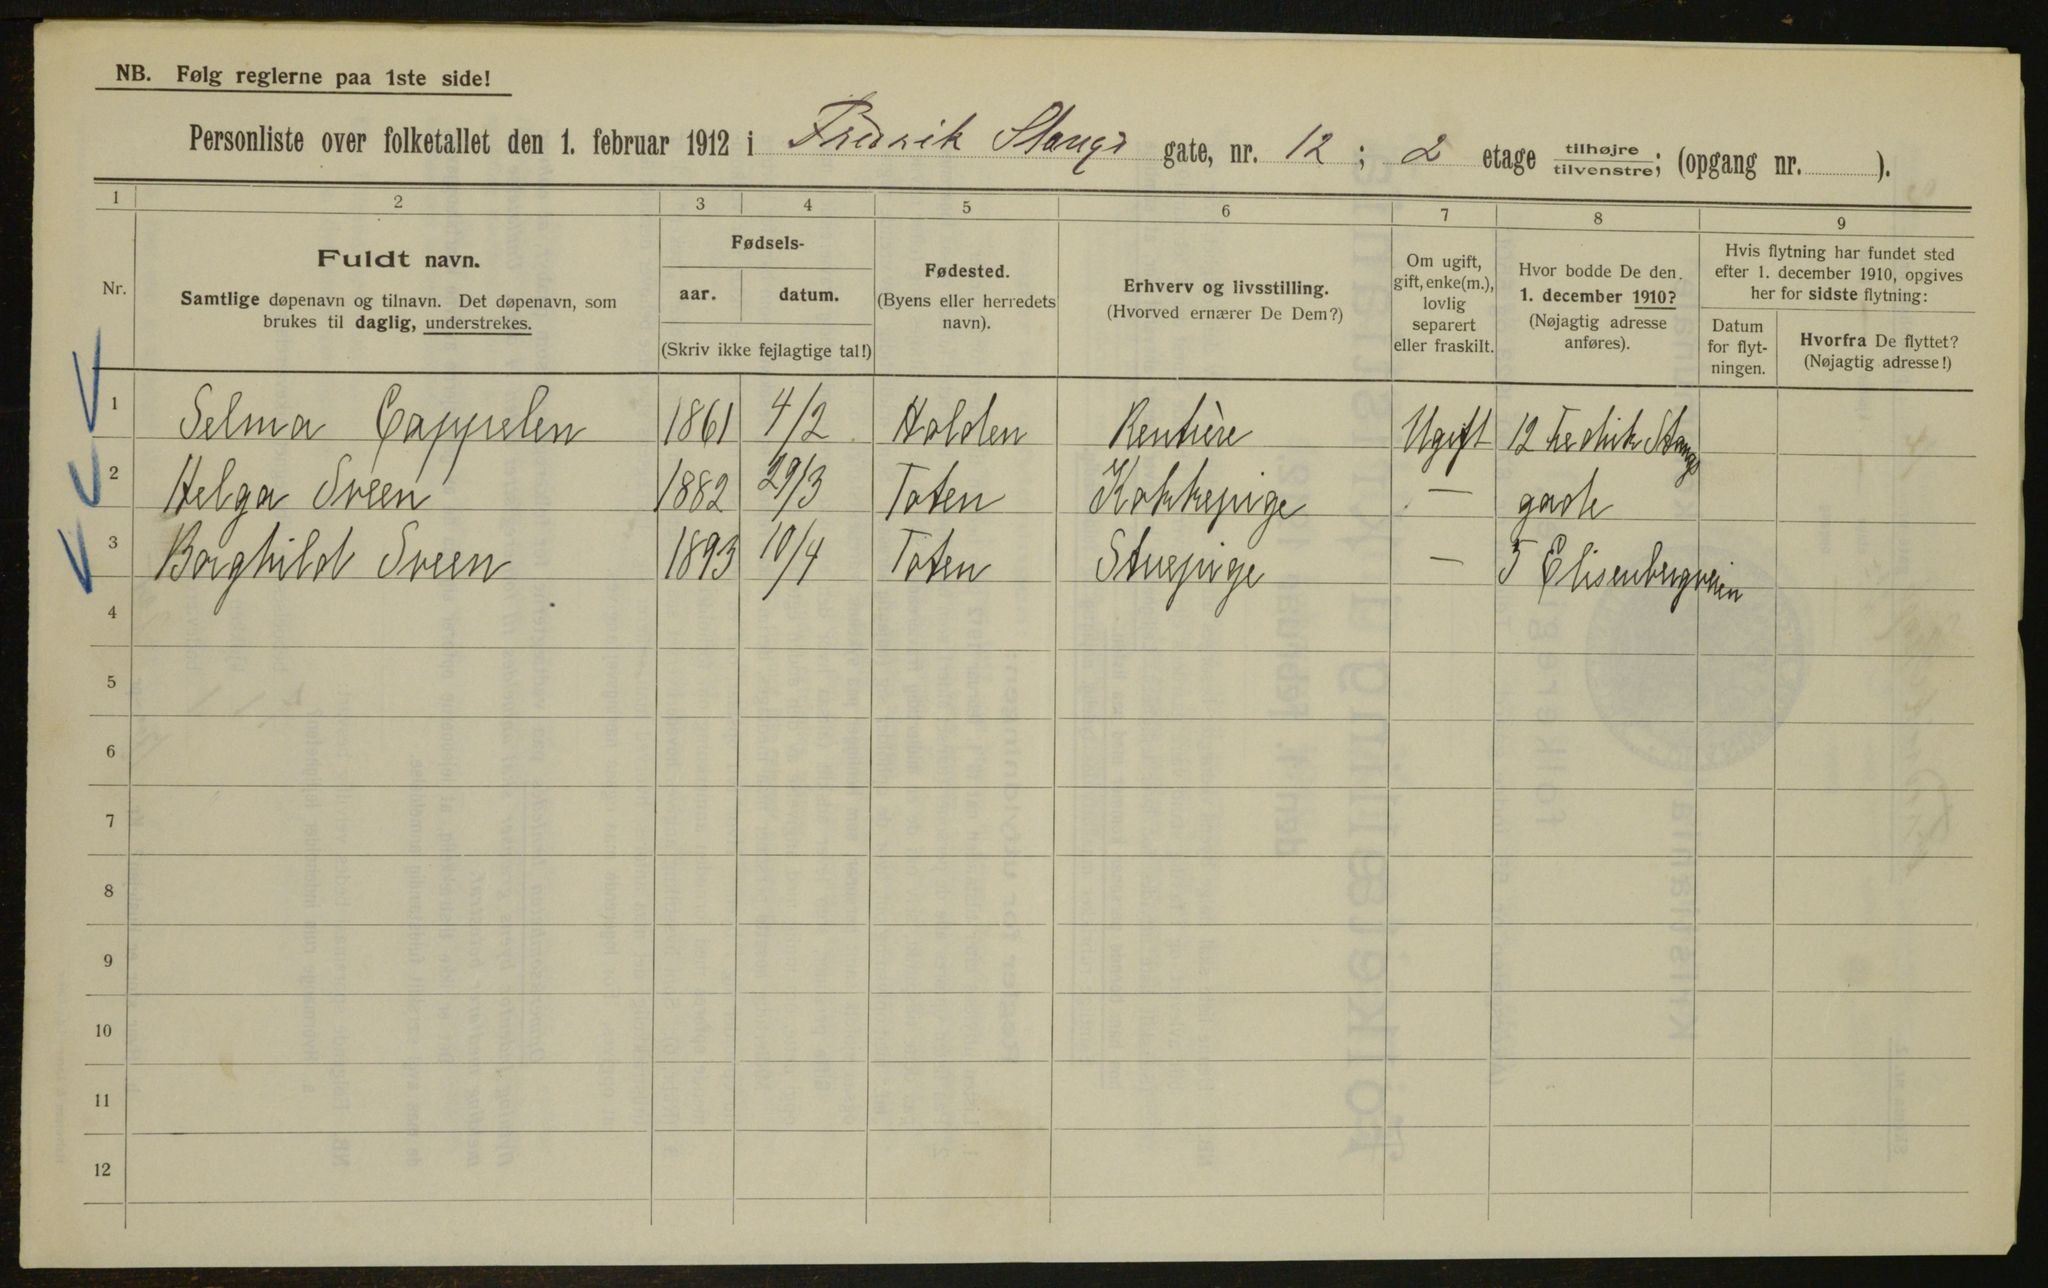 NB. Følg reglerne paa 1ste side!
Personliste over folketallet den 1. februar 1912 i Fredrik Stangs gate, nr. 12 ; 2 etage tilhøjre tilvenstre; (opgang nr. ).
1 2 3 4 5 6 7 8 9
Nr.
Fuldt navn.
Samtlige døpenavn og tilnavn. Det døpenavn, som
brukes til daglig, understrekes.
Fødsels-
aar. datum.
(Skriv ikke fejlagtige tal!)
Fødested.
(Byens eller herredets
navn).
Erhverv og livsstilling.
(Hvorved ernærer De Dem?)
Om ugift,
gift, enke(m.),
lovlig
separert
eller fraskilt.
Hvor bodde De den
1. december 1910?
(Nøjagtig adresse
anføres).
Hvis flytning har fundet sted
efter 1. december 1910, opgives
her for sidste flytning:
Datum
for flyt-
ningen.
Hvorfra De flyttet?
(Nøjagtig adresse!)
1 Selma Cappelen 1861 4/2 Holden Rentière Ugift 12 Fedrik Stangs
2 Helga Sveen 1882 29/3 Toten Kokkepige — gade
3 Borghild Sveen 1893 10/4 Toten Stuepige — 5 Elisenbergveien
4
5
6
7
8
9
10
11
12